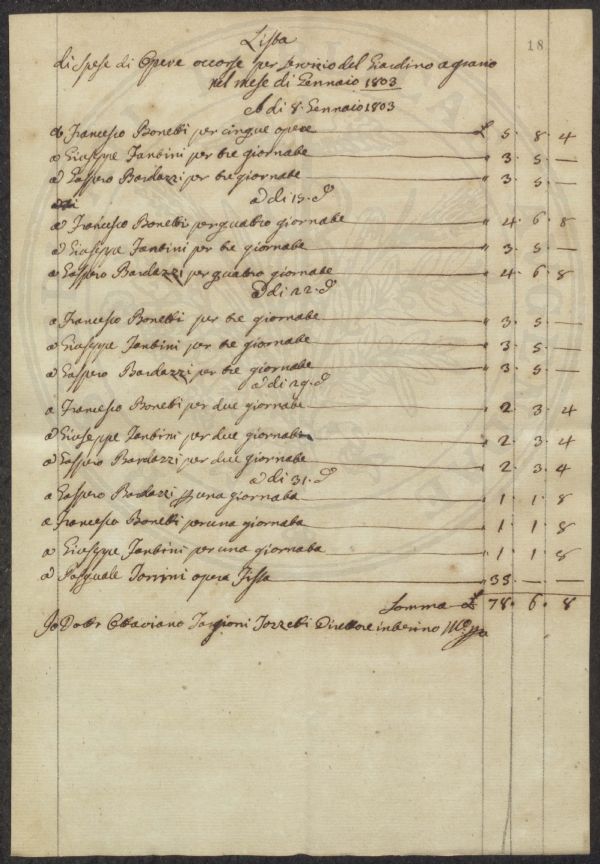 18
Lista
di spese di Opere occorse per servizio del Giardino agrario
nel mese di Gennaio 1803
A di 8. Gennaio 1803
a Francesco Bonetti per cinque opere £ 5. 8. 4
a Giuseppe Tantini per tre giornate " 3. 5. —
a Gaspero Bardazzi per tre giornate " 3. 5. —
a di 15. do
a Francesco Bonetti per quatro giornate " 4. 6. 8
a Giuseppe Tantini per tre giornate " 3. 5. —
a Gaspero Bardazzi per quatro giornate " 4. 6. 8
a di 22. do
a Francesco Bonetti per tre giornate " 3. 5. —
a Giuseppe Tantini per tre giornate " 3. 5. —
a Gaspero Bardazzi per tre giornate " 3. 5. —
a di 29. do
a Francesco Bonetti per due giornate " 2. 3. 4
a Giuseppe Tantini per due giornate " 2. 3. 4
a Gaspero Bardazzi per due giornate " 2. 3. 4
a di 31. do
a Gaspero Bardazzi p una giornata " 1. 1. 8
a Francesco Bonetti per una giornata " 1. 1. 8
a Giuseppe Tantini per una giornata " 1. 1. 8
a Pasquale Tonini opera fissa " 35 — —
Somma £ 78. 6. 8
Io Dottr Ottaviano Targioni Tozzetti Direttore interino